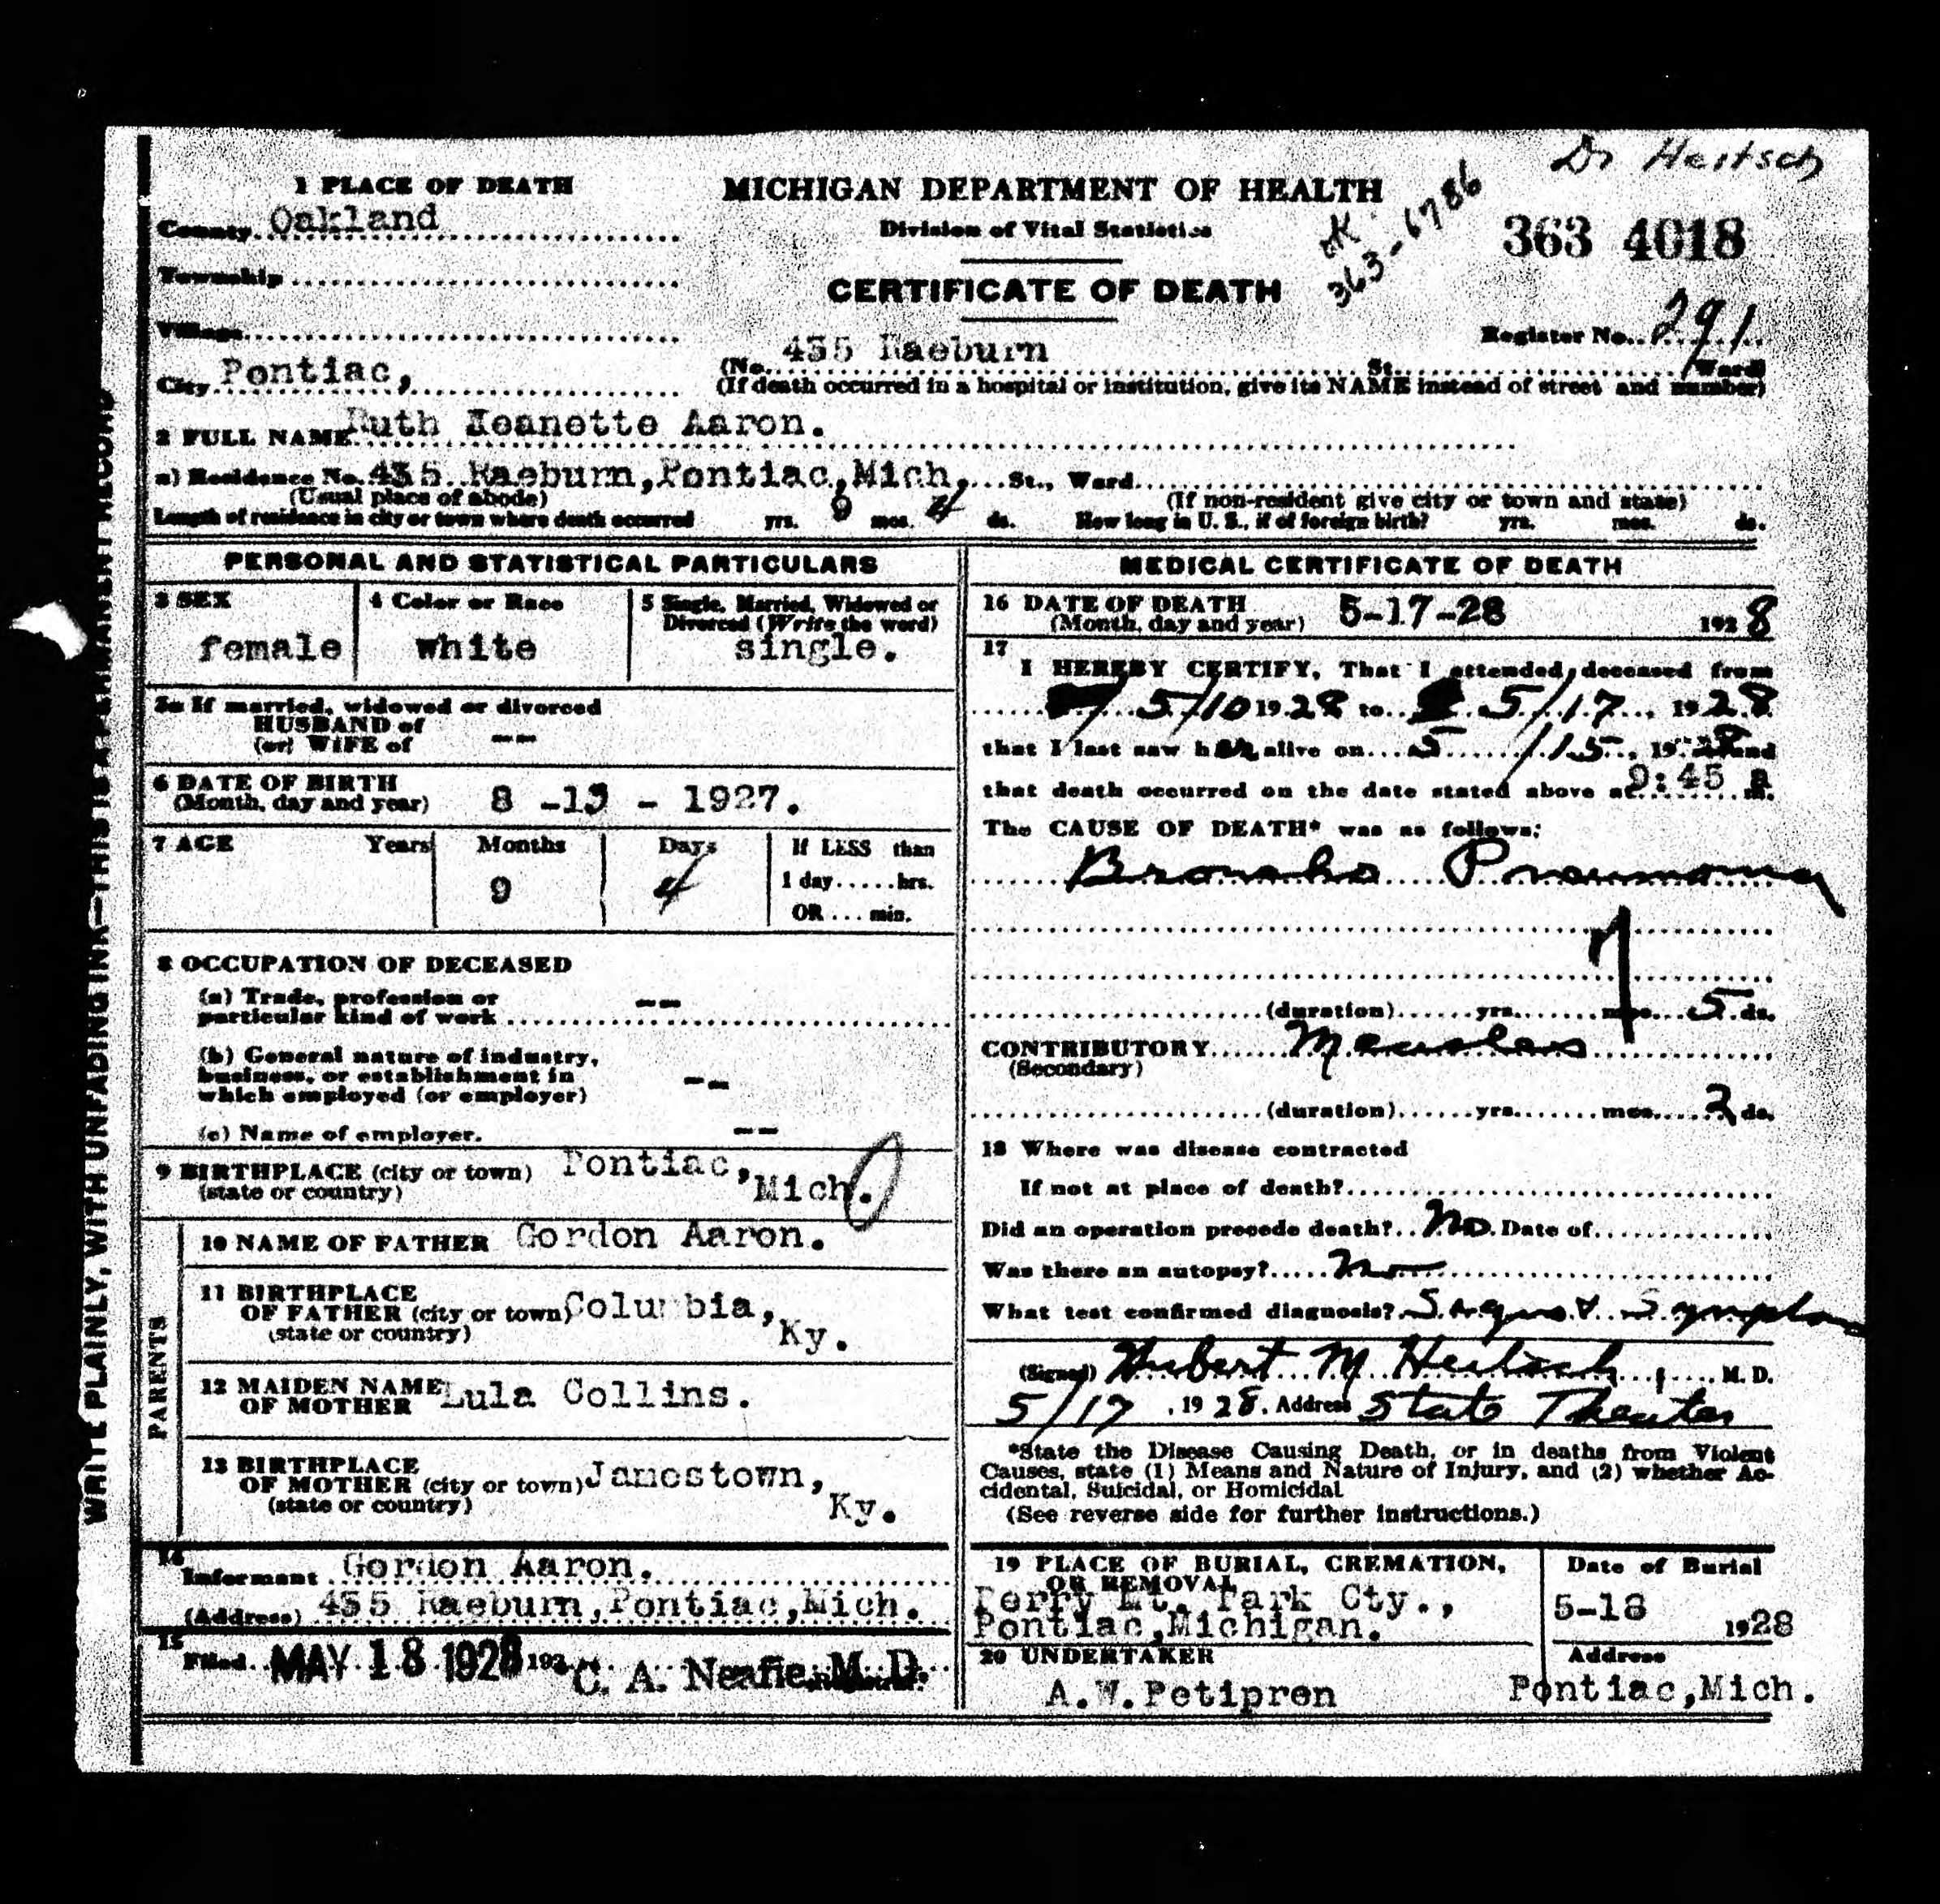 Dr Heitsch
1 PLACE OF DEATH
MICHIGAN DEPARTMENT OF HEALTH
County Oakland
Division of Vital Statistics
OK
363-6786
363 4018
Township
CERTIFICATE OF DEATH
Village
Register No. 291
City Pontiac,
(No. 435 Raeburn St. Ward)
(If death occurred in a hospital or institution, give its NAME instead of street and number)
2 FULL NAME Ruth Jeanette Aaron.
a) Residence No. 435 Raeburn, Pontiac, Mich. St., Ward
(Usual place of abode) (If non-resident give city or town and state)
Length of residence in city or town where death occurred yrs. 9 mos. 4 ds. How long in U. S., if of foreign birth? yrs. mos. ds.
PERSONAL AND STATISTICAL PARTICULARS
3 SEX
female
4 Color or Race
white
5 Single, Married, Widowed or
Divorced (Write the word)
single.
5a If married, widowed or divorced
HUSBAND of
(or) WIFE of --
6 DATE OF BIRTH
(Month, day and year) 8 -13 - 1927.
7 AGE Years Months Days If LESS than
1 day......hrs.
9 4
OR ... min.
8 OCCUPATION OF DECEASED
(a) Trade, profession or
particular kind of work --
(b) General nature of industry,
business, or establishment in
which employed (or employer) --
(c) Name of employer. --
9 BIRTHPLACE (city or town) Pontiac,
(state or country) Mich.
PARENTS
10 NAME OF FATHER Gordon Aaron.
11 BIRTHPLACE
OF FATHER (city or town) Columbia,
(state or country) Ky.
12 MAIDEN NAME
OF MOTHER Lula Collins.
13 BIRTHPLACE
OF MOTHER (city or town) Jamestown,
(state or country) Ky.
14
Informant Gordon Aaron.
(Address) 435 Raeburn, Pontiac, Mich.
15
Filed MAY 18 1928 192 C. A. Neafie, M. D.
MEDICAL CERTIFICATE OF DEATH
16 DATE OF DEATH
(Month, day and year) 5-17-28 1928
17
I HEREBY CERTIFY, That I attended deceased from
5/10 1928 to 5/17, 1928
that I last saw her alive on 5/15, 1928 and
that death occurred on the date stated above at 9:45 a m.
The CAUSE OF DEATH* was as follows:
Broncho Pneumonia
(duration) yrs. mos. 5 ds.
CONTRIBUTORY Measles
(Secondary)
(duration) yrs. mos. 2 ds.
18 Where was disease contracted
If not at place of death?
Did an operation precede death? No Date of
Was there an autopsy? No
What test confirmed diagnosis? Signs &
(Signed) Hubert M Heitsch, M. D.
5/17, 1928. Address State Theater
*State the Disease Causing Death, or in deaths from Violent
Causes, state (1) Means and Nature of Injury, and (2) whether Ac-
cidental, Suicidal, or Homicidal
(See reverse side for further instructions.)
19 PLACE OF BURIAL, CREMATION,
OR REMOVAL
Perry Mt. Park Cty.,
Pontiac, Michigan.
Date of Burial
5-18 1928
20 UNDERTAKER
A.W.Petipren
Address
Pontiac, Mich.
WRITE PLAINLY, WITH UNFADING INK—THIS IS A PERMANENT RECORD